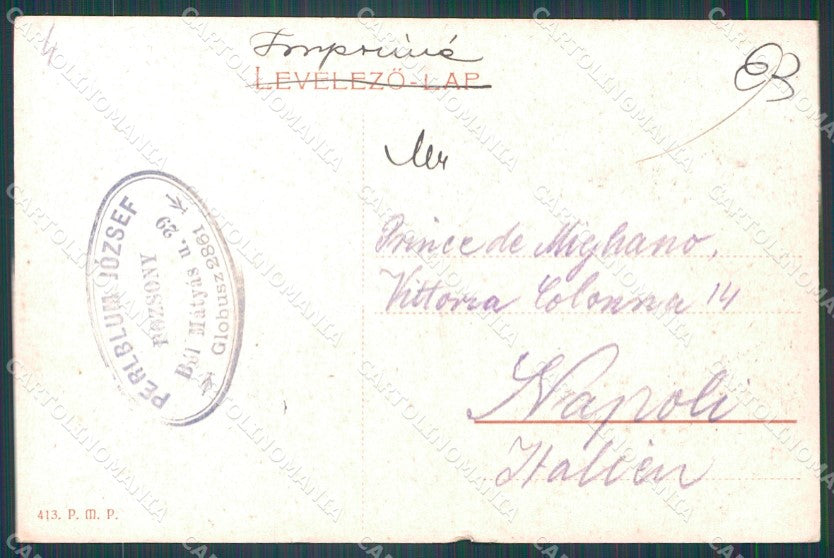 Imprimé
LEVELEZŐ-LAP
Mr
Prince de Migliano,
Vittoria Colonna 14
Napoli
Italien
PERLBLUM JÓZSEF
POZSONY
Bél Mátyás u. 29
Globusz 2861
413. P. M. P.
CARTOLINOMANIA